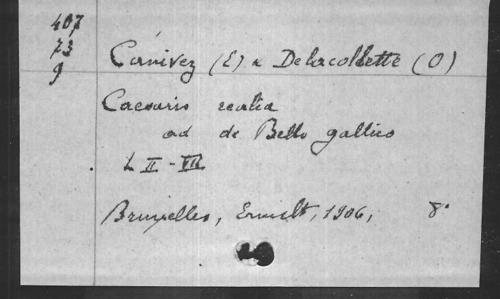 407
73
9
Canivez (E) & Delacollette (O)
Caesaris realia
ad de Bello gallico
L II - VII
Bruxelles, 1906, 8°